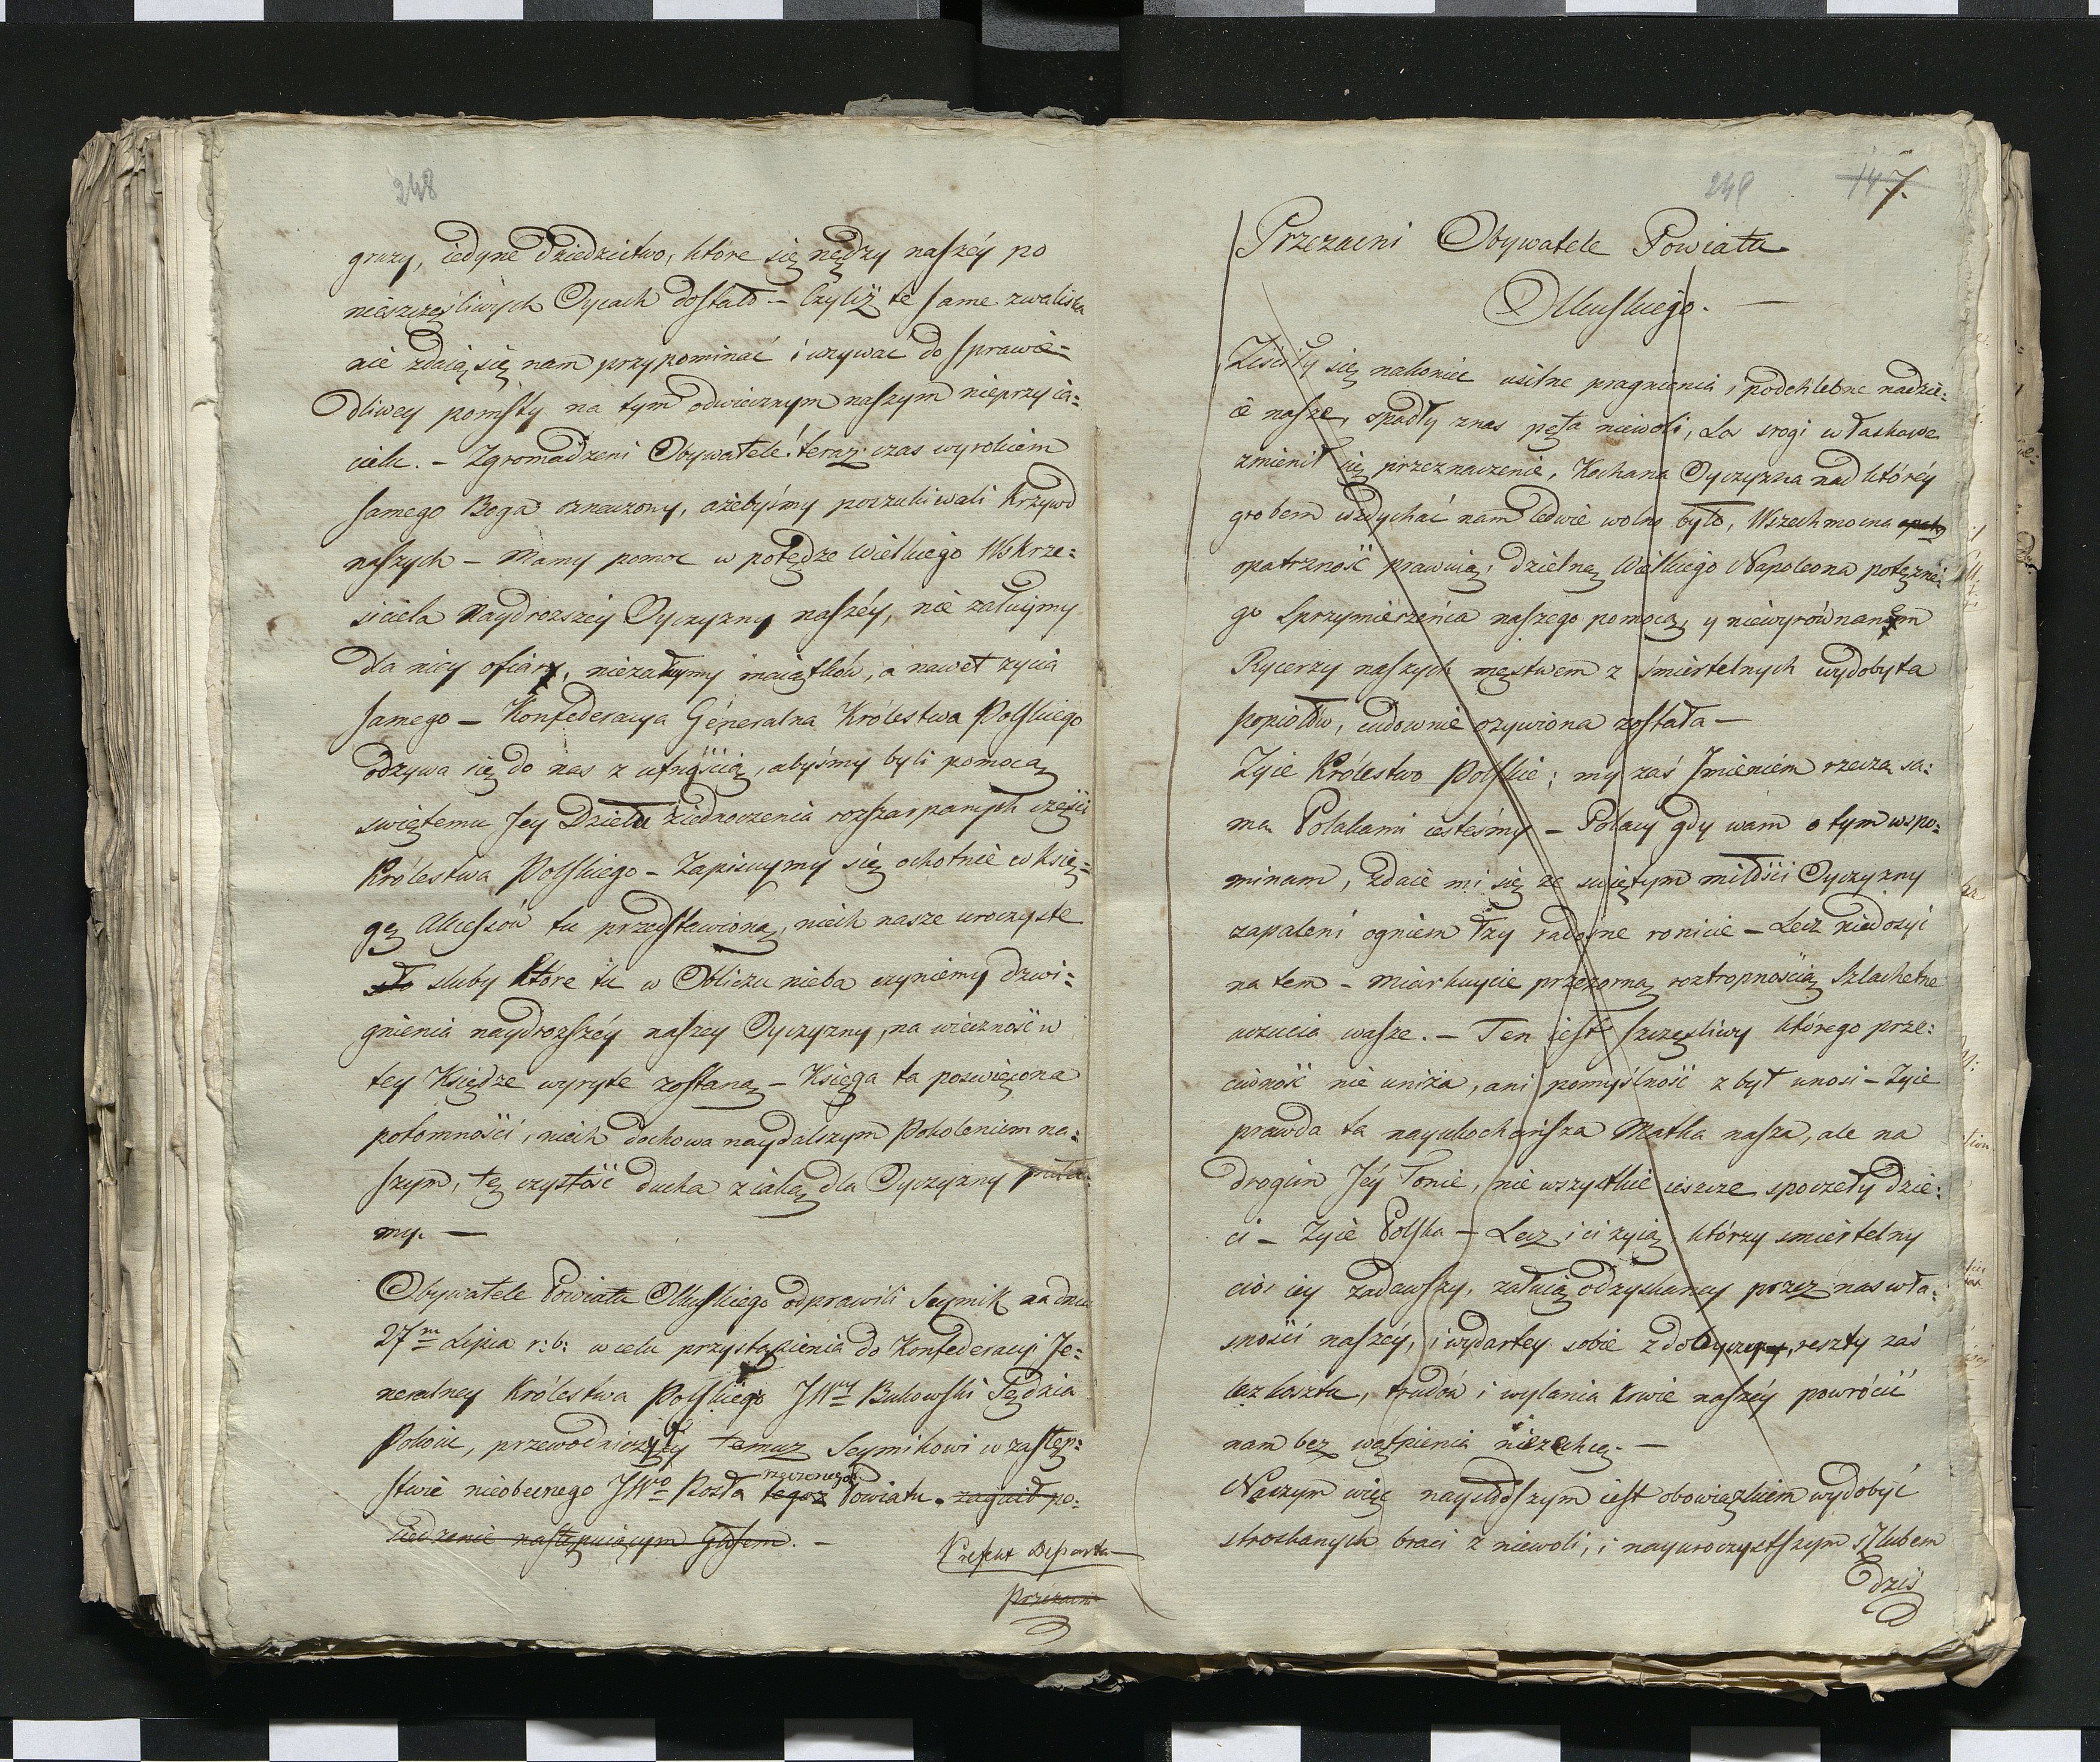 248
gruzy, iedyne dziedzictwo, które się nędzy naszéy po
nieszczęśliwych Oycach dostało – Czyliż te same zwaliska
nie zdaią się nam przypominać i wzywać do sprawie=
dliwey pomsty na tym odwiecznym naszym nieprzyia=
cielu. – Zgromadzeni Obywatele! teraz czas wyrokiem
samego Boga oznaczony, ażebyśmy poszukiwali Krzywd
naszych – Mamy pomoc w potędze Wielkiego Wskrze=
siciela Naydrozszéy Oyczyzny naszéy, nie załuymy
dla niey ofiary, niezałuymy maiątków, a nawet zycia
samego – Konfederacya Géneralna Królestwa Polskiego
odzywa się do nas z ufnością, abyśmy byli pomocą
swiętemu Jey Dziełu ziednoczenia rozszarpanych części
Królestwa Polskiego – Zapisuymy się ochotnie w Xsię=
gę Akcessów tu przedstawioną, niech nasze uroczyste
sluby które tu w Obliczu nieba czyniemy dzwi=
gnienia naydrozszéy naszey Oyczyzny, na wieczność w
tey Księdze wyryte zostaną – Księga ta poswięcona
potomności, niech dochowa naydalszym Pokoleniem na=
szym, tę czystość ducha z iaką dla Oyczyzny pała=
my. –
Obywatele Powiatu Olkuskiego odprawili Seymik na dniu
27m Lipca r: b: w celu przystąpienia do Konfederacyi Je=
neralney Królestwa Polskiego JWny Bukowski Sędzia
Pokoiu, przewodniczący temuz Seymikowi w zastęp=
stwie nieobecnego JWo Posła tegoz rzeczonego Powiatu. zagaił po=
siedzenie następuiącym Głosem. –
Prefekt Departa
Przezacni
248
147.
Przezacni Obywatele Powiatu
Olkuskiego. –
Ziściły się nakoniec usilne pragnienia, i podchlebne nadzie=
ie nasze, spadły z nas pęta niewoli, Los srogi w łaskawe
zmienił się przeznaczenie, Kochana Oyczyzna nad któréy
grobem wzdychać nam ledwie wolno było, Wszechmocna
opatrzność prawicą, dzielną Wielkiego Napoleona potęzne=
go Sprzymierzeńca naszego pomocą, y niewyrównanem
Rycerzy naszych męstwem z śmiertelnych wydobyta
popiołów, cudownie ozywiona została –
Zyie Królestwo Polskie; my zaś Jmieniem rzeczą sa=
mą Polakami iesteśmy – Polacy gdy wam o tym wspo=
minam, zdaie mi się ze swiętym miłości Oyczyzny
zapaleni ogniem łzy radosne ronicie – Lecz niedosyć
na tem – Miarkuycie przezorną roztropnością Szlachetne
uczucia wasze. – Ten iest szczęśliwy którego prze=
ciwność nie uniża, ani pomyślność zbyt unosi – Zyie
prawda ta nayukochańsza Matka nasza, ale na
drogim Jéy łonie, nie wszystkie ieszcze spoczęły dzie=
ci – Zyie Polska – Lecz i ci zyią którzy smiertelny
cios iey zadawszy, załuią odzyskaney przez nas wła=
sności naszéy, i wydartey sobie zdobyczy, reszty zaś
bez kosztu, trudów i wylania krwie naszéy powrócić
nam bez wątpienia niezechcą. –
Naszym więc nayczulszym iest obowiązkiem wydobyć
stroskanych braci z niewoli, i nayuroczystszym szlubem
dziś